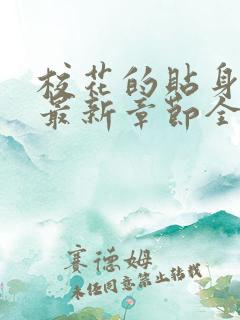 校花的贴身
最新章节全
赛德姆
未经同意禁止转载